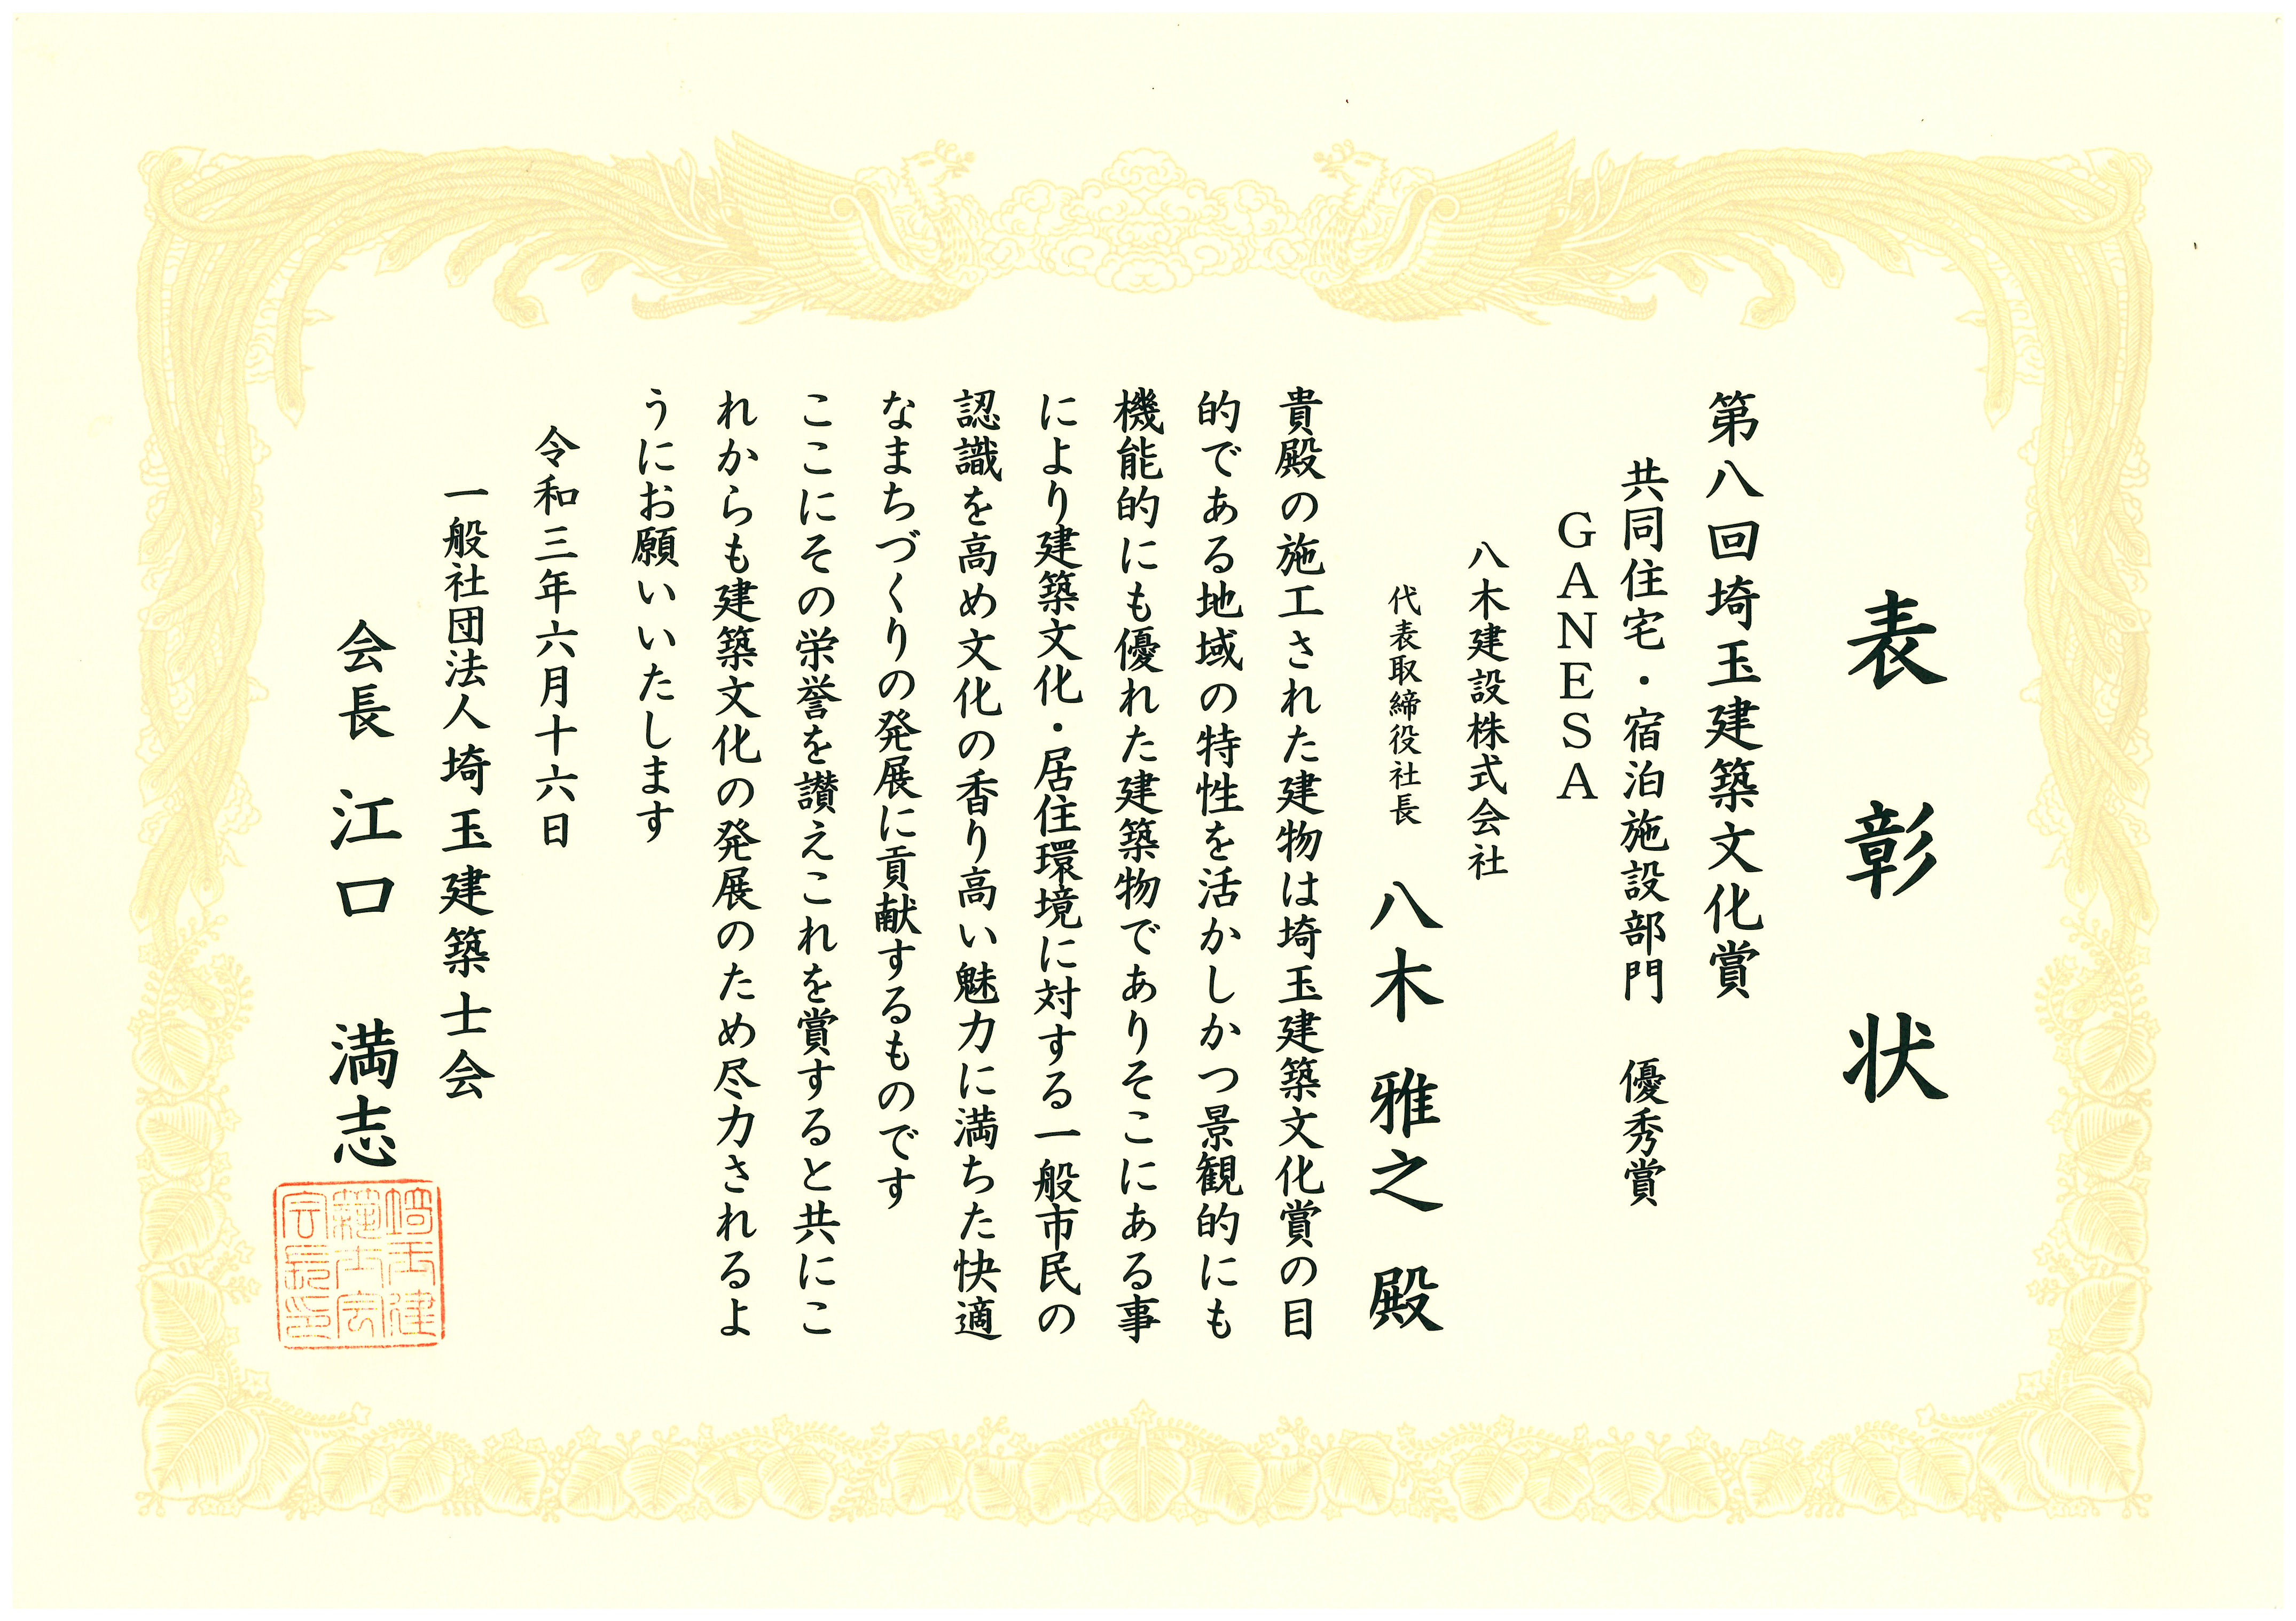 表彰状
第八回埼玉建築文化賞
共同住宅・宿泊施設部門　優秀賞
ＧＡＮＥＳＡ
八木建設株式会社
代表取締役社長　八木　雅之　殿
貴殿の施工された建物は埼玉建築文化賞の目
的である地域の特性を活かしかつ景観的にも
機能的にも優れた建築物でありそこにある事
により建築文化・居住環境に対する一般市民の
認識を高め文化の香り高い魅力に満ちた快適
なまちづくりの発展に貢献するものです
ここにその栄誉を讃えこれを賞すると共にこ
れからも建築文化の発展のため尽力されるよ
うにお願いいたします
令和三年六月十六日
一般社団法人埼玉建築士会
会長　江口　満志
埼玉建
築士会
会長印